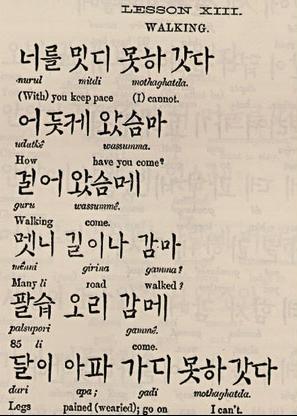 LESSON XIII.
WALKING.
너를 밋디 못하 갓다
nurul mitdi mothaghatda.
(With) you keep pace (I) cannot.
어둣게 왔슴마
udutkê wassumma.
How have you come?
걸어 왔슴메
guru wassummê.
Walking come.
멧니 길이나 감마
mênni girina gamma?
Many li road walked?
팔습 오리 감메
palsupori gammê.
85 li come.
달이 아파 가디 못하갓다
dari apa; gadi mothaghatda.
Legs pained (wearied); go on I can't.